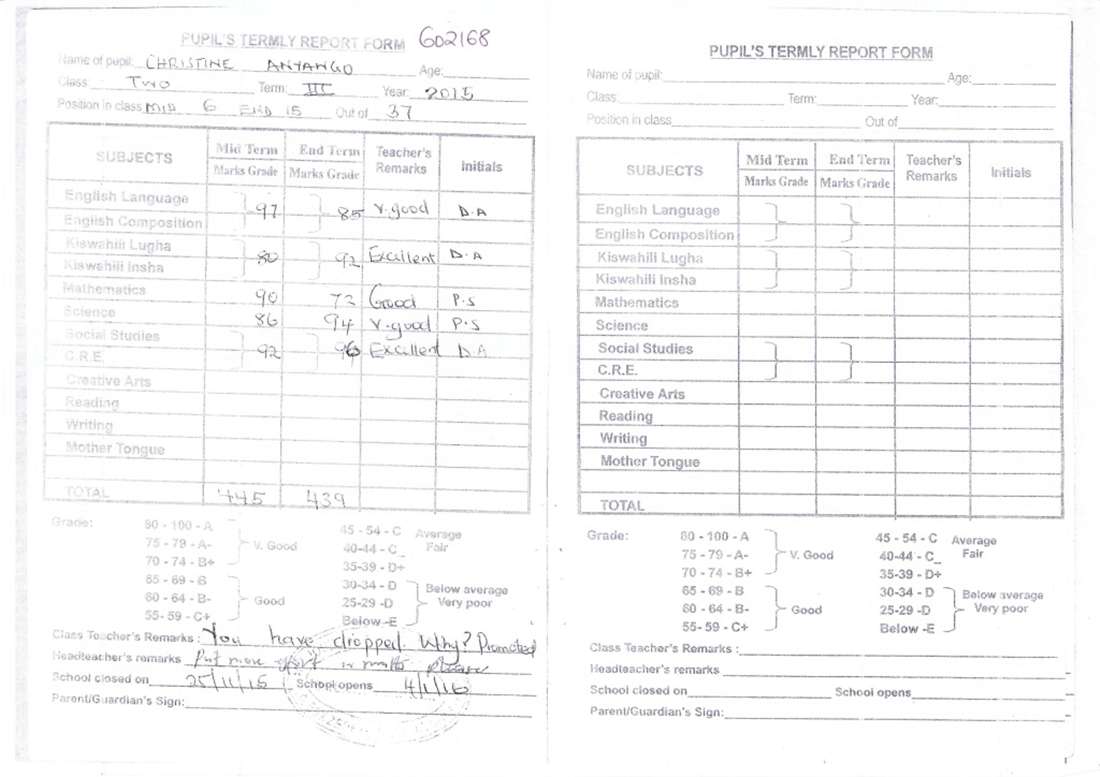 PUPIL'S TERMLY REPORT FORM GD2168
Name of pupil: CHRISTINE ANYANGO Age:
Class: TWO Term: III Year: 2015
Position in class MID 6 END 15 Out of 37
SUBJECTS Mid Term End Term Teacher's Remarks Initials
Marks Grade Marks Grade
English Language
97 85 V.good D.A
English Composition
Kiswahili Lugha
80 92 Excellent D.A
Kiswahili Insha
Mathematics 90 72 Good P.S
Science 86 94 V.good P.S
Social Studies
92 96 Excellent D.A
C.R.E.
Creative Arts
Reading
Writing
Mother Tongue
TOTAL 445 439
Grade: 80 - 100 - A 45 - 54 - C Average
75 - 79 - A- V. Good 40-44 - C_ Fair
70 - 74 - B+ 35-39 - D+
65 - 69 - B 30-34 - D Below average
60 - 64 - B- Good 25-29 -D Very poor
55- 59 - C+ Below -E
Class Teacher's Remarks : You have dropped. Why? Promoted
Headteacher's remarks Put more effort in maths please
School closed on 25/11/15 School opens 4/1/16
Parent/Guardian's Sign:
PUPIL'S TERMLY REPORT FORM
Name of pupil: Age:
Class: Term: Year:
Position in class Out of
SUBJECTS Mid Term End Term Teacher's Remarks Initials
Marks Grade Marks Grade
English Language
English Composition
Kiswahili Lugha
Kiswahili Insha
Mathematics
Science
Social Studies
C.R.E.
Creative Arts
Reading
Writing
Mother Tongue
TOTAL
Grade: 80 - 100 - A 45 - 54 - C Average
75 - 79 - A- V. Good 40-44 - C_ Fair
70 - 74 - B+ 35-39 - D+
65 - 69 - B 30-34 - D Below average
60 - 64 - B- Good 25-29 -D Very poor
55- 59 - C+ Below -E
Class Teacher's Remarks :
Headteacher's remarks
School closed on School opens
Parent/Guardian's Sign: